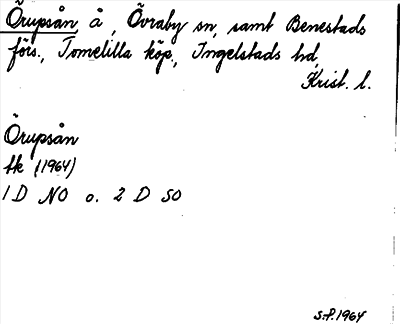 Örupsån, å, Övraby sn, samt Benestads
förs., Tomelilla köp., Ingelstads hd,
Krist. l.
Örupsån
tk (1964)
1 D NO o. 2 D SO
S.P. 1964